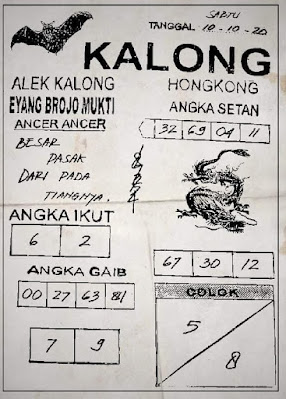 SABTU
TANGGAL 10-10-20
KALONG
ALEK KALONG
EYANG BROJO MUKTI
ANCER ANCER
BESAR
PASAK
DARI PADA
TIANGNYA.
HONGKONG
ANGKA SETAN
32 69 04 11
ANGKA IKUT
6 2
ANGKA GAIB
00 27 63 84
7 9
67 30 12
COLOK
5
8